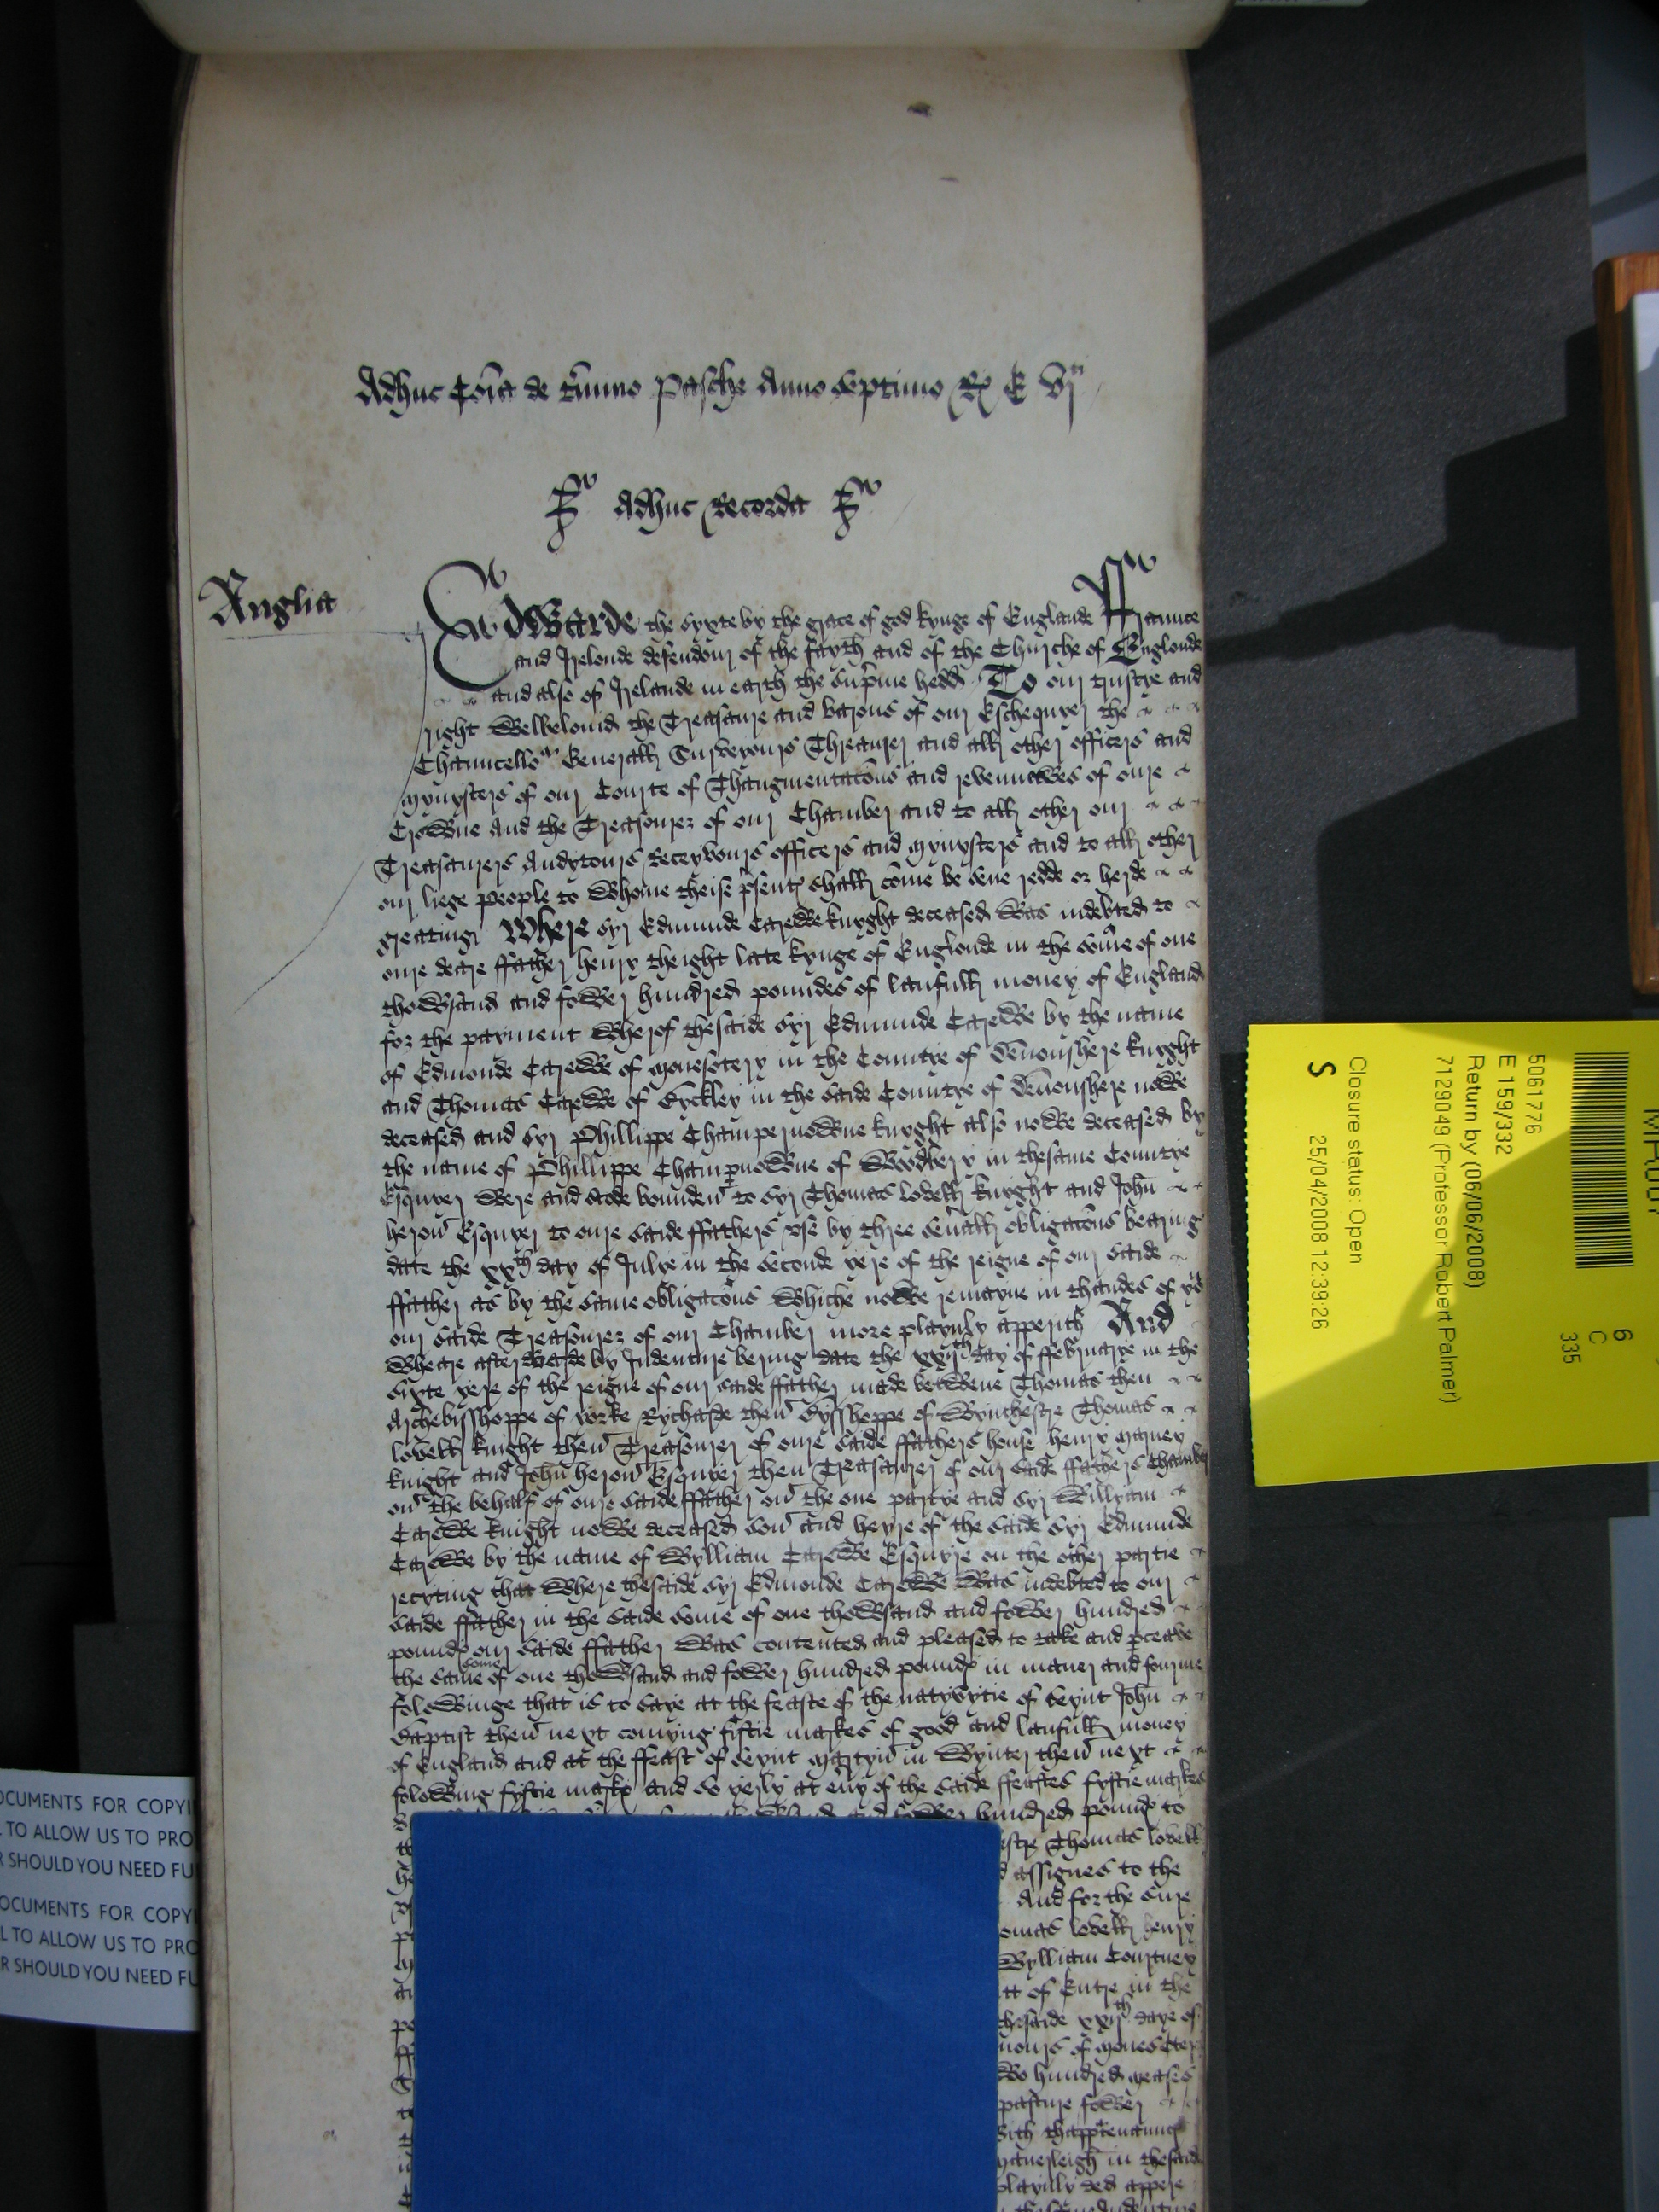 Adhuc Co͠ia de t͠mino Pasche Anno septimo R E vj
Adhuc Recorda
Anglia
Edwarde the syxte by the grace of god kynge of Englande Ffraunce
and Irelonde defendour of the fayth and of the Churche of Englonde
and also of Irelande in earth the sup͠me hedd To our trustye and
right welbelouid the Treasaure and barons of our Eschequyer the
Chauncelloͬ Generall Surveyours Threaurer and all other officers and
mynysters of our Courte of Thaugmentac͠ons and revennuewes of oure
Crowne And the Treasourer of our Chamber and to all other our
Treasaurers Audytours Receyvours officers and mynysters and to all other
our liege people to whome theise p͠sent shall come be sene redde or herde
greating Where syr Edmunde Carewe knyght deceased was indebted to
oure deare ffather henry theight late kynge of Englonde in the som͠e of one
thowsand and fower hundred poundes of laufull money of England
for the payment wherof thesaide Syr Edmunde Carewe by the name
of Edmonde Carewe of mouesotery in the Countye of Deuonshere knyght
and Thomas Carewe of Byckley in the saide Countye of Deuonshere nowe
deceased and Syr Phillippe Champernowne knyght also nowe deceased by
the name of Phillippe Champnowne of Woodbery in thesame Countye
Esquyer were and stode bounden to Syr Thomas lovell knyght and John
heron Esquyer to oure saide ffathers vse by three seu͠all obligac͠ons bearing
date the xxth day of Julye in the seconde yere of the reigne of our saide
ffather as by the same obligac͠ons whiche nowe remayne in thandes of
our saide Treasourer of our Chamber more playnly apperith And
wheare afterwarde by Indenture bering date the xxijth day of ffebruarye in the
sixte yere of the reigne of our saide ffather made betwene Thomas then
Archebisshoppe of yorke Rycharde then Bysshoppe of Wynchestre Thomas
lovell knight then Treasourer of oure saide ffathers house henry marney
knight and John heron Esquyer then Treasaurer of our saide ffathers Chamber
on the behalf of oure saide ffather on the one partye and Syr Willyam
Carewe knight nowe deceased son and heyre of the saide Syr Edmunde
Carewe by the name of Wylliam Carewe Esquyre on the other partie
recyting that where thesaide Syr Edmonde Carewe was indebted to our
saide ffather in the saide some of one thowsand and fower hundred
pound our saide ffather was contented and pleased to take and p͠ceave
the same some of one thowsand and fower hundred pound in maner and fourme
folowinge that is to saye at the feaste of the natyvytie of Seynt John
Baptist then next comyng fiftie markes of good and laufull money
of England and at the ffeast of Seynt Martyn in Wynter then next
folowing fyftie mark and so yerly at eu͠y of the saide ffeastes fyftie markes
and fower hundred pound to
Thomas lovell
assignes to the
And for the sure
lovell henry
Wylliam Courtney
of in the
thesaide xxijth daye of
of
hundred meases
pasture fower
with thapp͠tenaunc
in thesaide
appere
MR001
6
C
335
5061776
E 159/332
Return by (06/06/2008)
7129049 (Professor Robert Palmer)
Closure status: Open
S 25/04/2008 12:39:26
OCUMENTS FOR COPYI
L TO ALLOW US TO PRO
R SHOULD YOU NEED FU
OCUMENTS FOR COPY
L TO ALLOW US TO PRO
R SHOULD YOU NEED FU